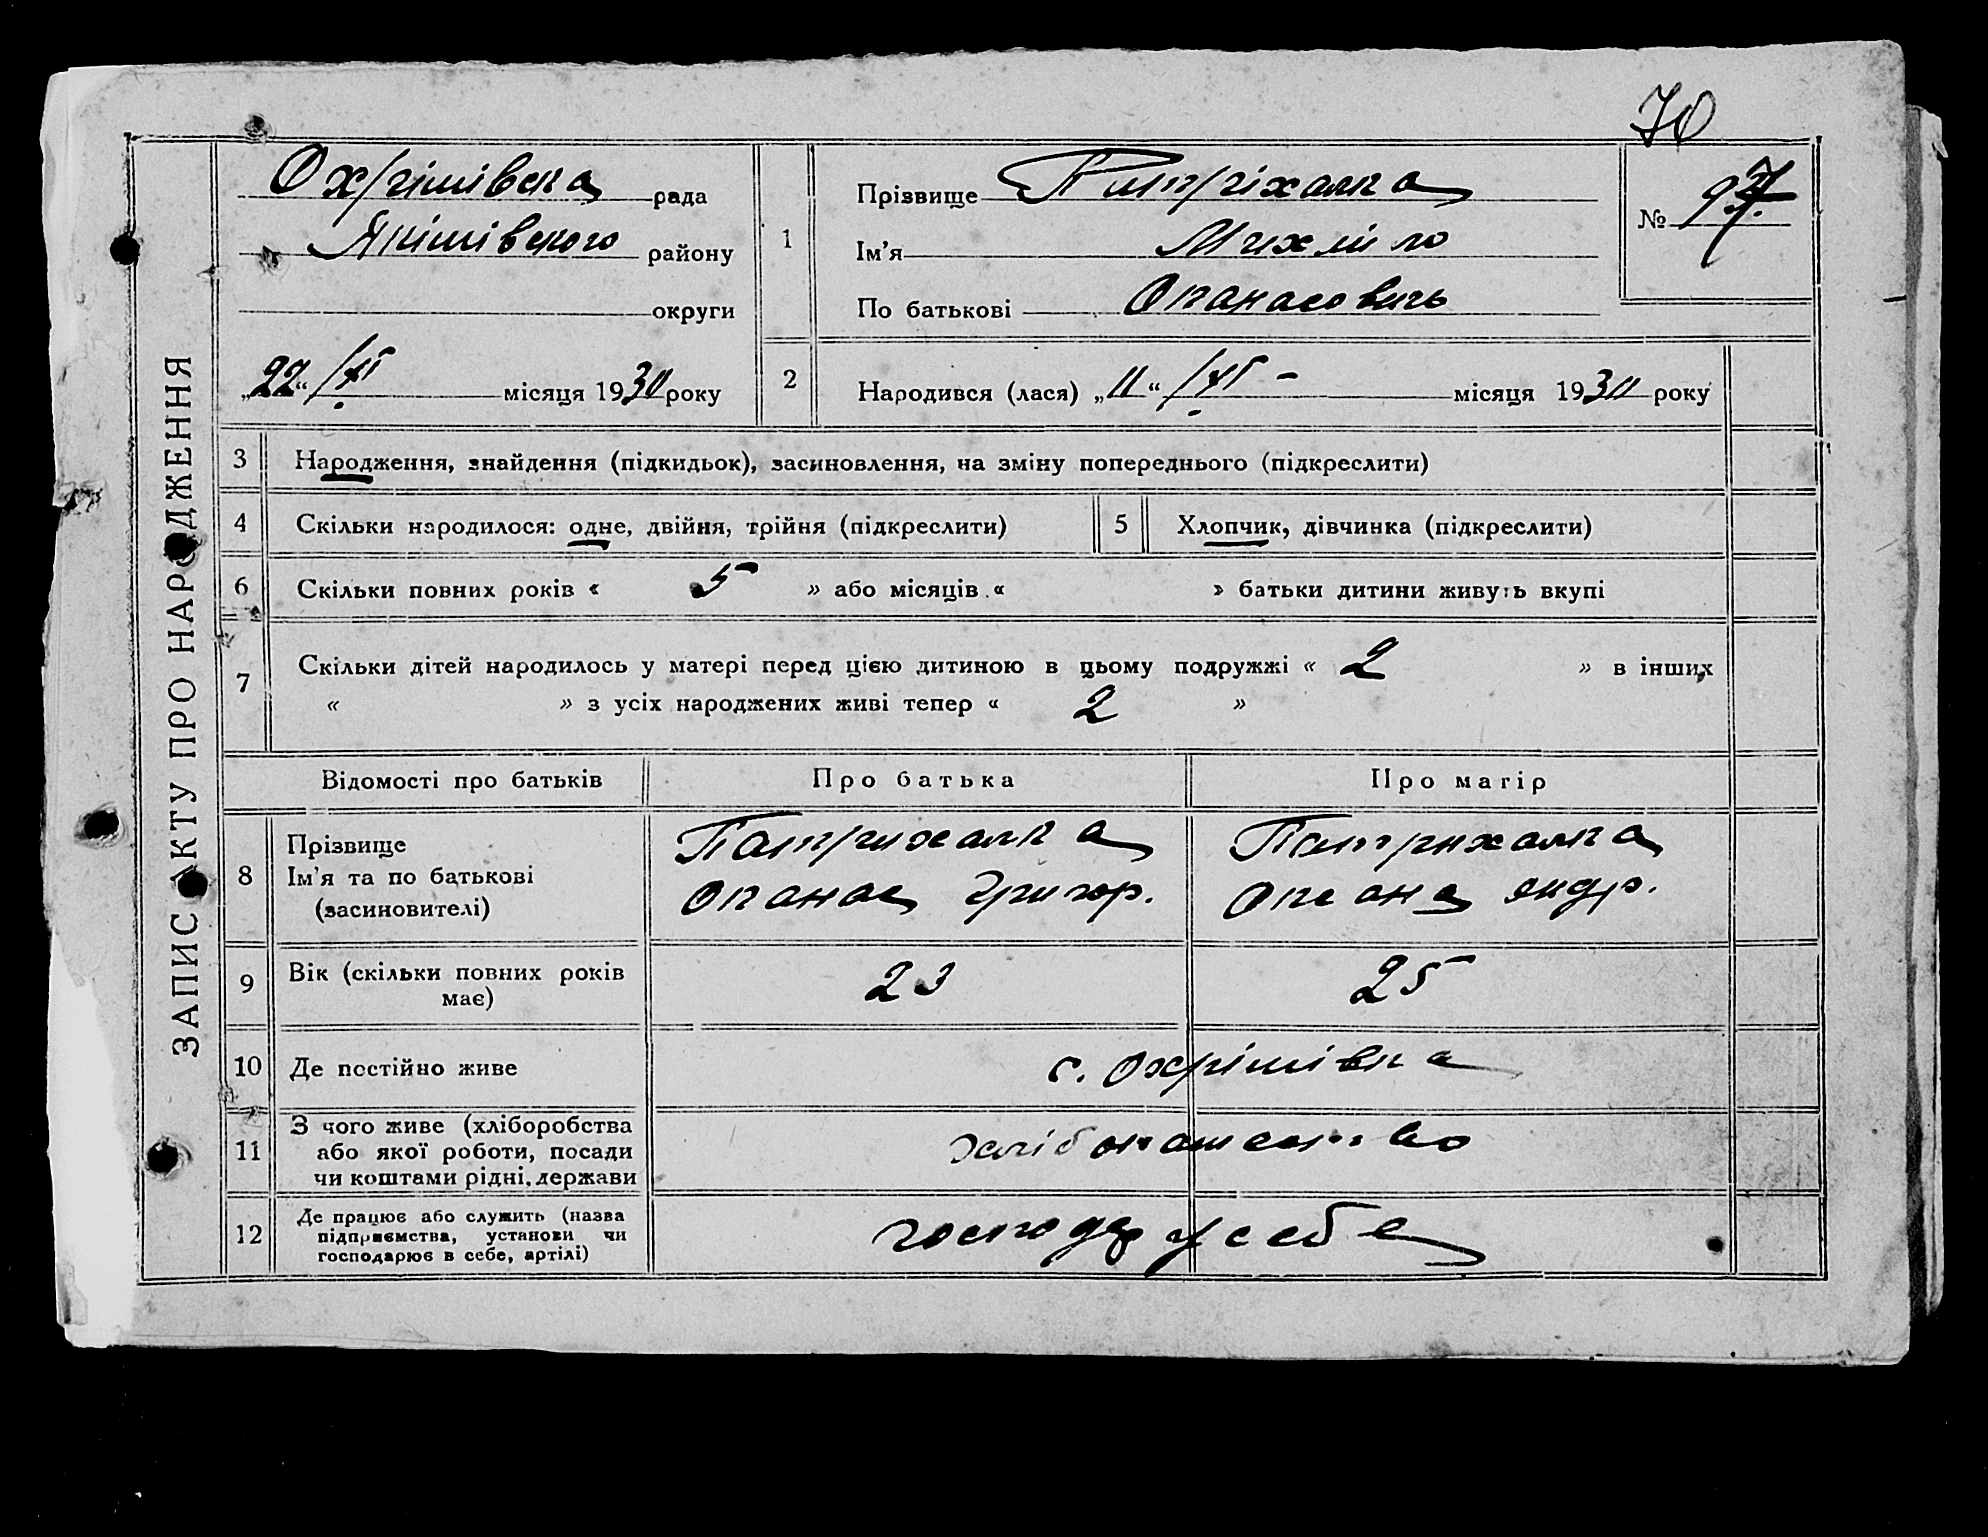 70
ЗАПИС АКТУ ПРО НАРОДЖЕННЯ
Охрімівська рада
Якімівського району
округи
„22“ /XI місяця 1930 року
1
Прізвище Патріхалка
Ім’я Михайло
По батькові Опанасовичь
№ 97
2
Народився (лася) „11“ /XI – місяця 1930 року
3 Народження, знайдення (підкидьок), засиновлення, на зміну попереднього (підкреслити)
4 Скільки народилося: одне, двійня, трійня (підкреслити) 5 Хлопчик, дівчинка (підкреслити)
6 Скільки повних років « 5 » або місяців « » батьки дитини живуть вкупі
7 Скільки дітей народилось у матері перед цією дитиною в цьому подружжі « 2 » в інших
« » з усіх народжених живі тепер « 2 »
Відомості про батьків Про батька Про матір
8 Прізвище Ім’я та по батькові (засиновителі)
Патрихалка Опанас Григор.
Патрихалка Оксана Андр.
9 Вік (скільки повних років має) 23 25
10 Де постійно живе с. Охрімівка
11 З чого живе (хліборобства або якої роботи, посади чи коштами рідні, держави хлібопашество
12 Де працює або служить (назва підприємства, установи чи господарює в себе, артілі) господ у себе